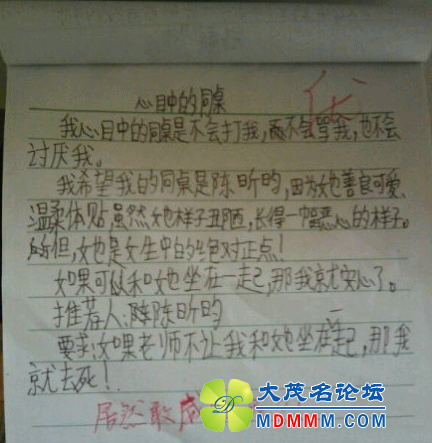 心目中的同桌
优
我心目中的同桌是不会打我,而不会骂我,也不会
讨厌我。
我希望我的同桌是陈昕昀,因为她善良可爱,
温柔体贴,虽然她样子丑陋,长得一幅恶心的样子。
但,她也是女生中的绝对正点!
如果可以和她坐在一起,那我就安心了。
推荐人:陈昕昀
要求:如果老师不让我和她坐在一起,那我
就去死!
居然敢
大茂名论坛
MDMMM.COM